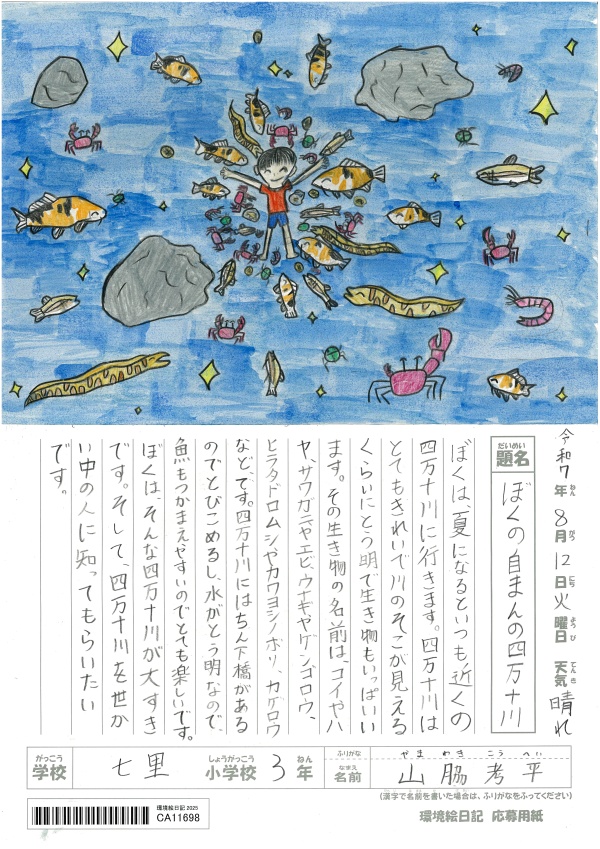 令和7年8月12日火曜日 天気 晴れ
ねん がつ にち ようび てんき
だいめい
題名 ぼくの自まんの四万十川
ぼくは、夏になるといつも近くの
四万十川に行きます。四万十川は
とてもきれいで川のそこが見える
くらいにとう明で生き物もいっぱいい
ます。その生き物の名前は、コイやハ
ヤ、サワガニやエビ、ウナギやゲンゴロウ、
ヒラタドロムシやカワヨシノボリ、カゲロウ
などです。四万十川にはちん下橋がある
のでとびこめるし、水がとう明なので、
魚もつかまえやすいのでとても楽しいです。
ぼくは、そんな四万十川が大すき
です。そして、四万十川を世か
い中の人に知ってもらいたい
です。
がっこう しょうがっこう ねん ふりがな やまわき こうへい
学校 七里 小学校 3年 なまえ 名前 山脇 考平
(漢字で名前を書いた場合は、ふりがなをふってください)
環境絵日記 2025
CA11698
環境絵日記 応募用紙